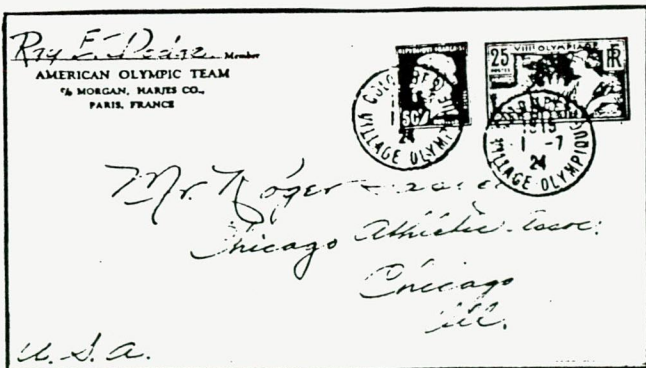 Ray E. Member
AMERICAN OLYMPIC TEAM
c/o MORGAN, HARJES CO.,
PARIS, FRANCE
REPUBLIQUE FRANÇAISE
50c
25
VIII OLYMPIADE
POSTES
RF
VILLAGE OLYMPIQUE
24
1915
1 - 7
24
VILLAGE OLYMPIQUE
Mr. Roger
Chicago Athletic Assoc.
Chicago
Ill.
U. S. A.